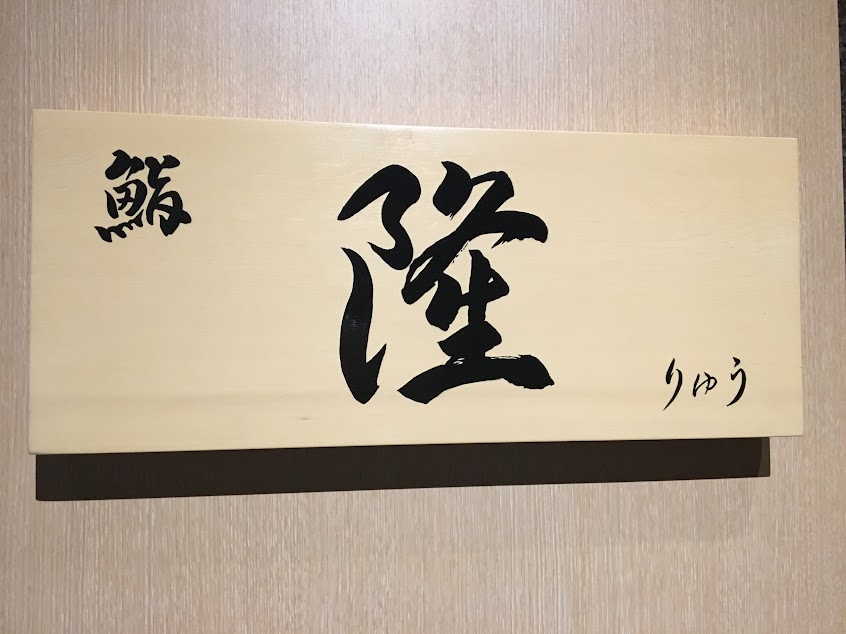 鮨
隆
りゅう